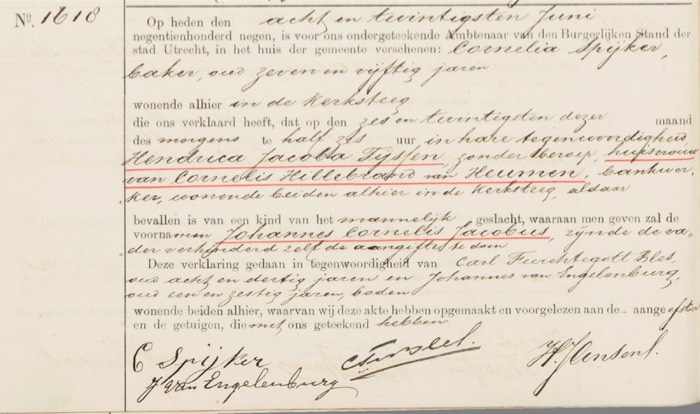 No. 1618
Op heden den acht en twintigsten Juni
negentienhonderd negen, is voor ons ondergeteekende Ambtenaar van den Burgerlijken Stand der
stad Utrecht, in het huis der gemeente verschenen: Cornelia Spijker,
baker, oud zeven en vijftig jaren
wonende alhier in de Kerksteeg
die ons verklaard heeft, dat op den zes en twintigsten dezer maand
des morgens te half zes uur in hare tegenwoordigheid
Hendrica Jacoba Tijssen, zonder beroep, huisvrouw
van Cornelis Hillebrand van Heumen, bankwer-
ker, wonende beiden alhier in de Kerksteeg, aldaar
bevallen is van een kind van het mannelijk geslacht, waaraan men geven zal de
voornamen Johannes Cornelis Jacobus, zijnde de va-
der verhinderd zelf de aangifte te doen
Deze verklaring gedaan in tegenwoordigheid van Carl Furchtegott Bles,
oud acht en dertig jaren en Johannes van Engelenburg,
oud een en zestig jaren, boden
wonende beiden alhier, waarvan wij deze akte hebben opgemaakt en voorgelezen aan de aangeefster
en de getuigen, die met ons geteekend hebben.
C Spijker CF Bles H. Jansen
J van Engelenburg